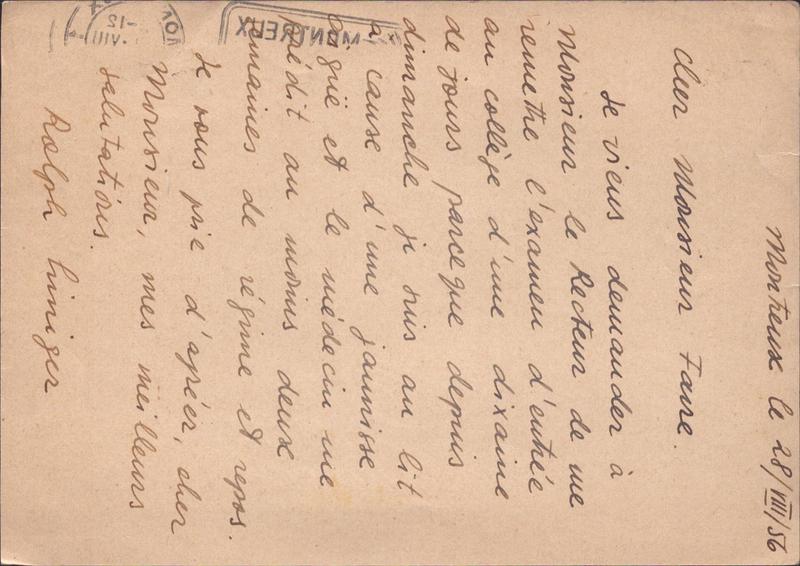 Montreux le 28/VIII/56
Cher Monsieur Favre.
Je viens demander à
Monsieur le Recteur de me
remettre l'examen d'entrée
au collège d'une dixaine
de jours parceque depuis
dimanche je suis au lit
à cause d'une jaunisse
aigüe et le médecin me
prédit au moins deux
semaines de régime et repos.
Je vous prie d'agréer, cher
Monsieur, mes meilleurs
salutations.
Ralph Liniger
MONTREUX
-12
VIII